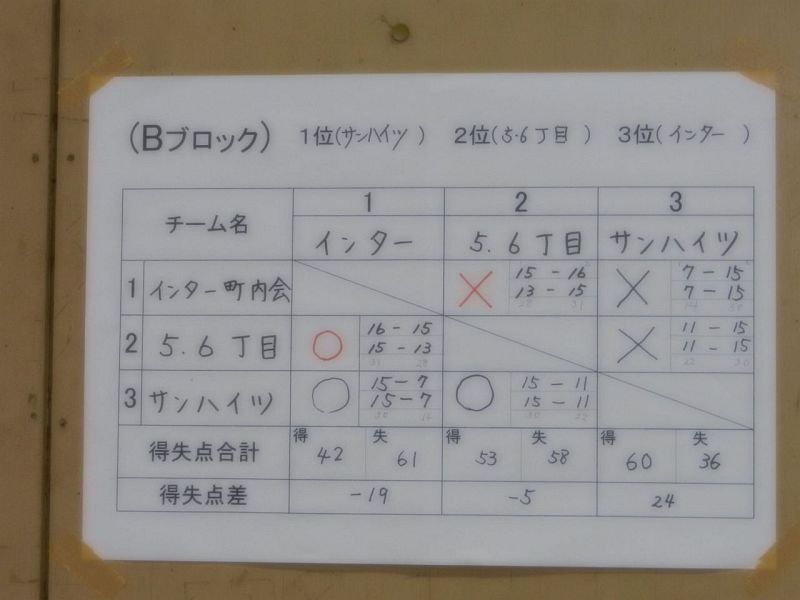 (Bブロック) 1位(サンハイツ) 2位(5.6丁目) 3位(インター)
チーム名 1 2 3
インター 5.6丁目 サンハイツ
1 インター町内会 × 15-16 × 7-15
13-15 7-15
28 31 14 30
2 5.6丁目 ○ 16-15 × 11-15
15-13 11-15
31 28 22 30
3 サンハイツ ○ 15-7 ○ 15-11
15-7 15-11
30 14 30 22
得失点合計 得 42 失 61 得 53 失 58 得 60 失 36
得失点差 -19 -5 24